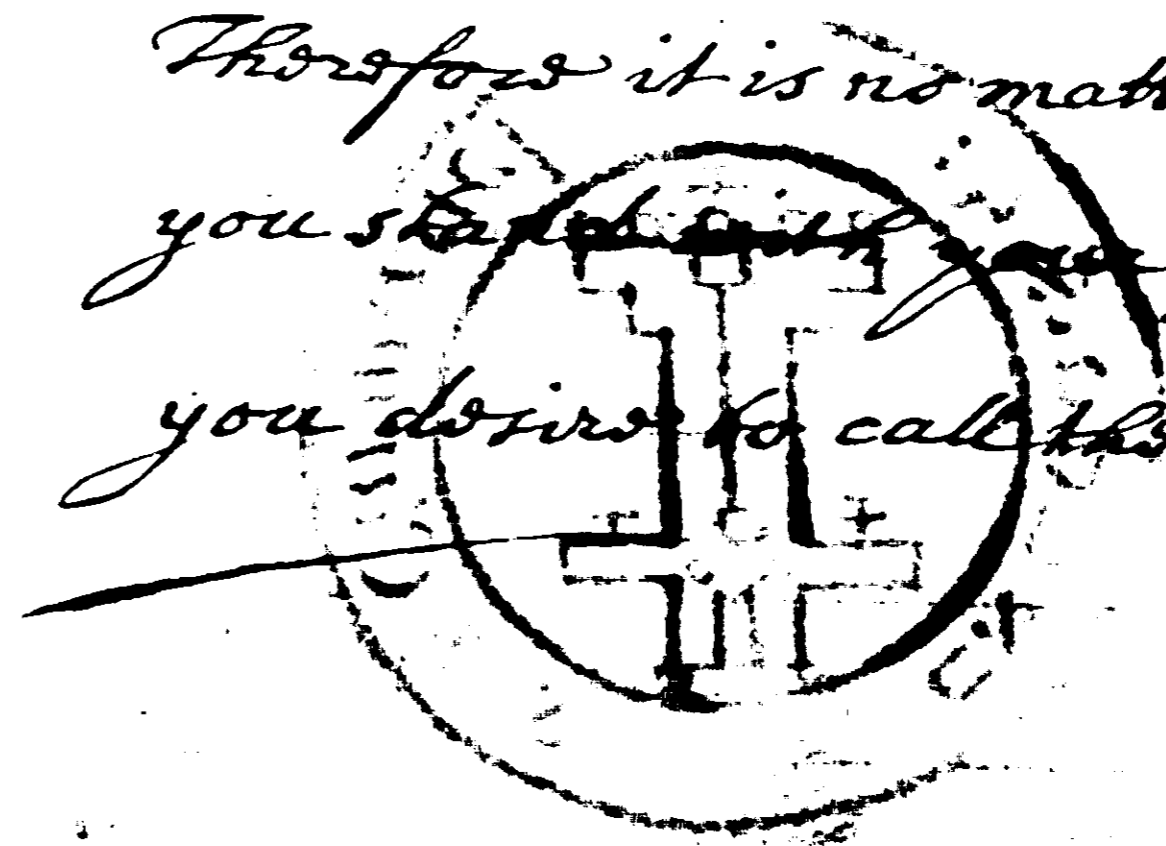 Therefore it is no matt
you stand with your
you desire to call the